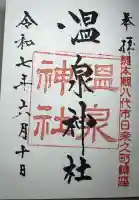 奉拝
熊本県八代市日奈久町鎮座
温泉神社
温泉
神社
令和七年六月十日